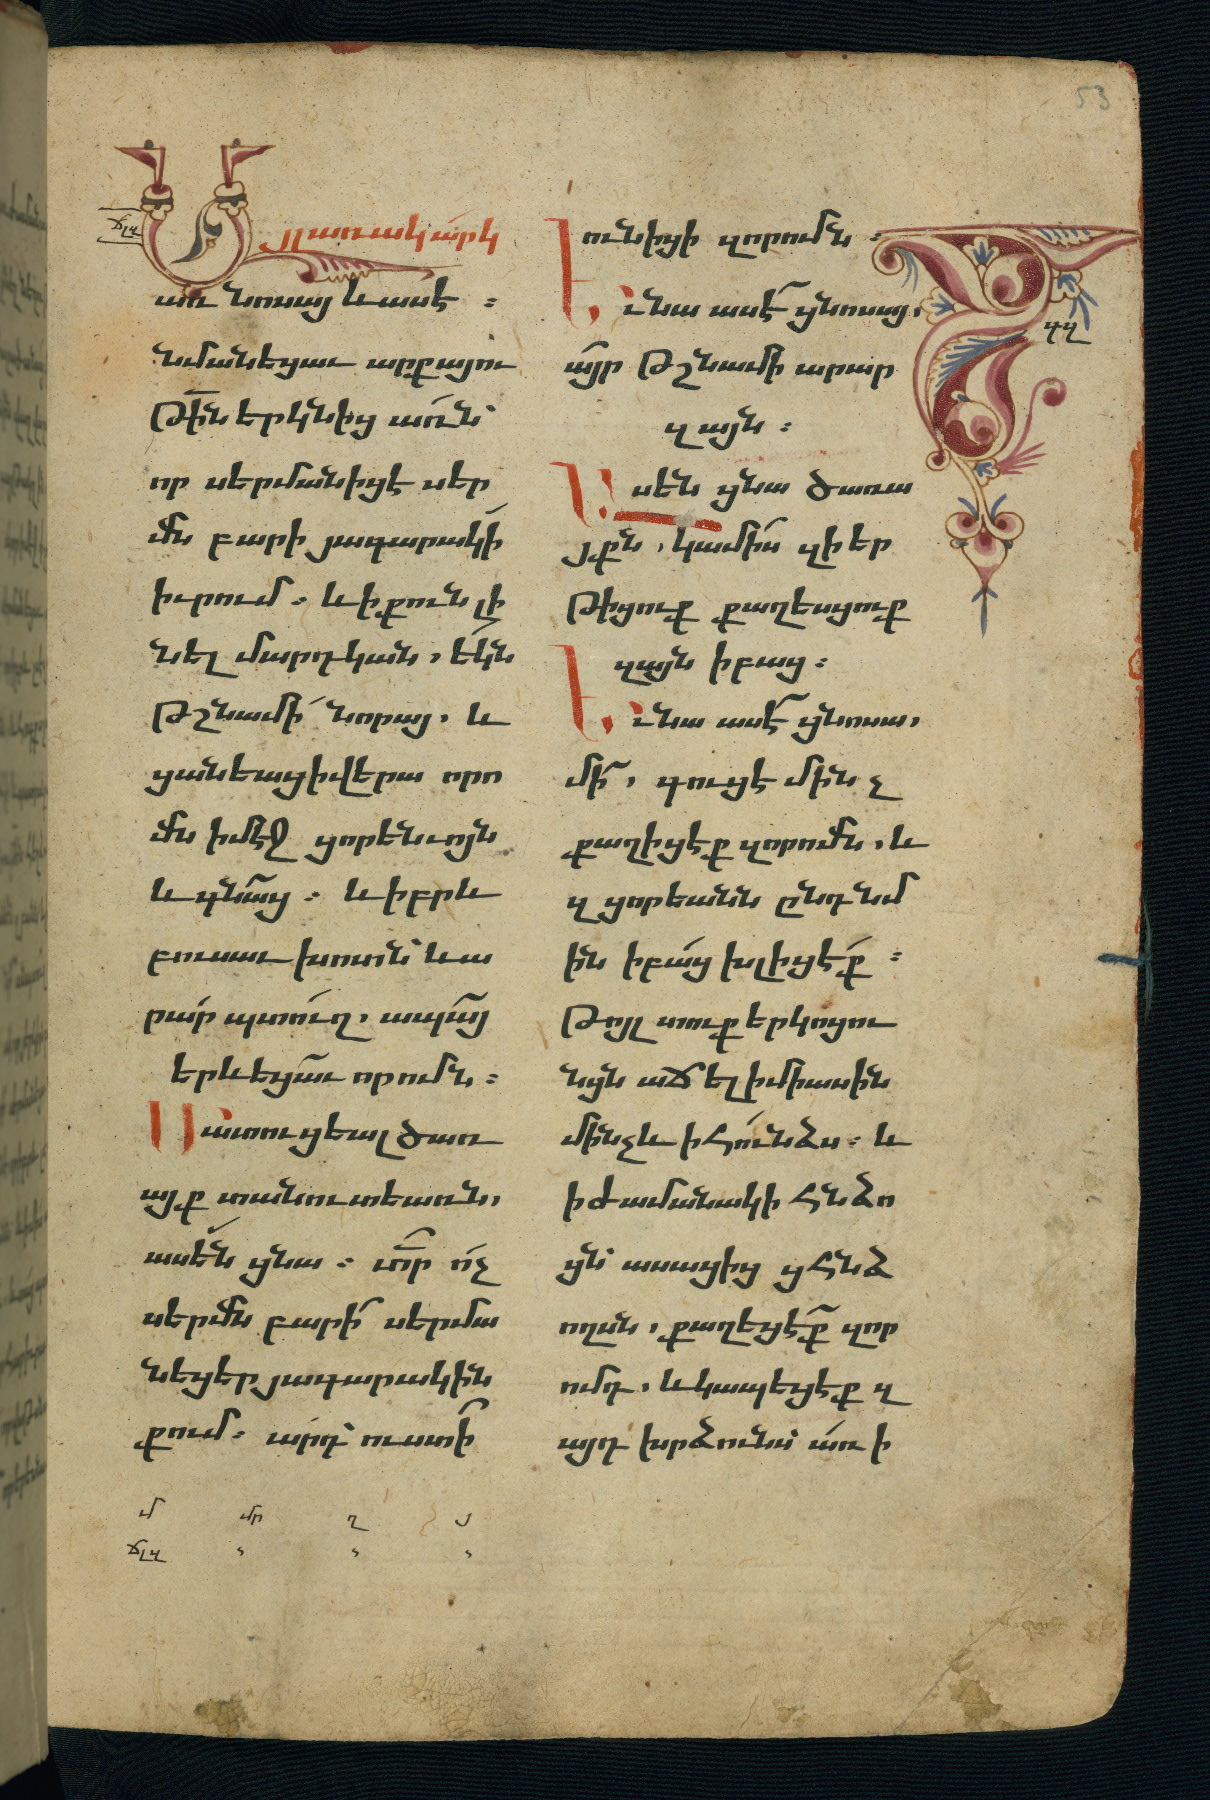 53
ճլզ
Այլ առակ արկ
առ նոսայ և ասէ :
նմանեցաւ արքայու
թին երկնից առն՝
որ սերմանիցէ սեր
մն բարի յագարակի
իւրում. և ի քուն լի
նել մարդկան, եկն
թշնամի նորայ. և
ցանեաց ի վերա որո
մն ի մէջ ցորենւոյն
և գնաց. և իբրև
բուսաւ խոտն՝ և ա
րար պտուղ, ապայ
երևեցաւ որոմն :
Մատուցեալ ծառ
այք տանուտեառն,
ասեն ցնա. տր ոչ
սերմն բարի սերմա
նեցեր յագարակին
քում. արդ՝ ուստի
ունիցի զորոմն :
Եւ նա ասէ ցնոսայ,
այր թշնամի արար
զայն :
Ասեն ցնա ծառա
յքն, կամիս զի եր
թիցուք քաղեսցուք
զայն ի բաց :
Եւ նա ասէ ցնոսա,
մի, գուցէ մինչ
քաղիցէք զորոմն, և
զցորեանն ընդ նմ
ին ի բաց խլիցէք :
Թոյլ տուք երկոցու
նցն աճել ի միասին
մինչև ի հունձս. և
ի ժամանակի հնձո
ցն՝ ասացից ցհնձ
ողսն, քաղեցէք զոր
ոմդ, և կապեցէք զ
այդ խրձունս՝ առ ի
մ մր ղ յ
ճլզ